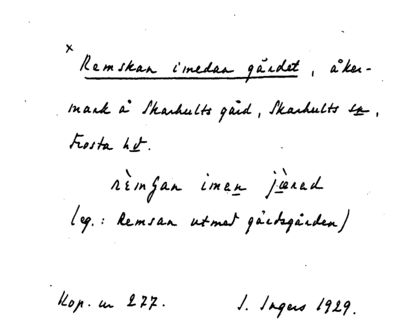 x Remskan imedan gärdet, åker-
mark å Skarhults gård, Skarhults sn,
Frosta hd.
(eg.: Remsan utmed gärdsgården)
Kop. nr 277. I. Ingers 1929.